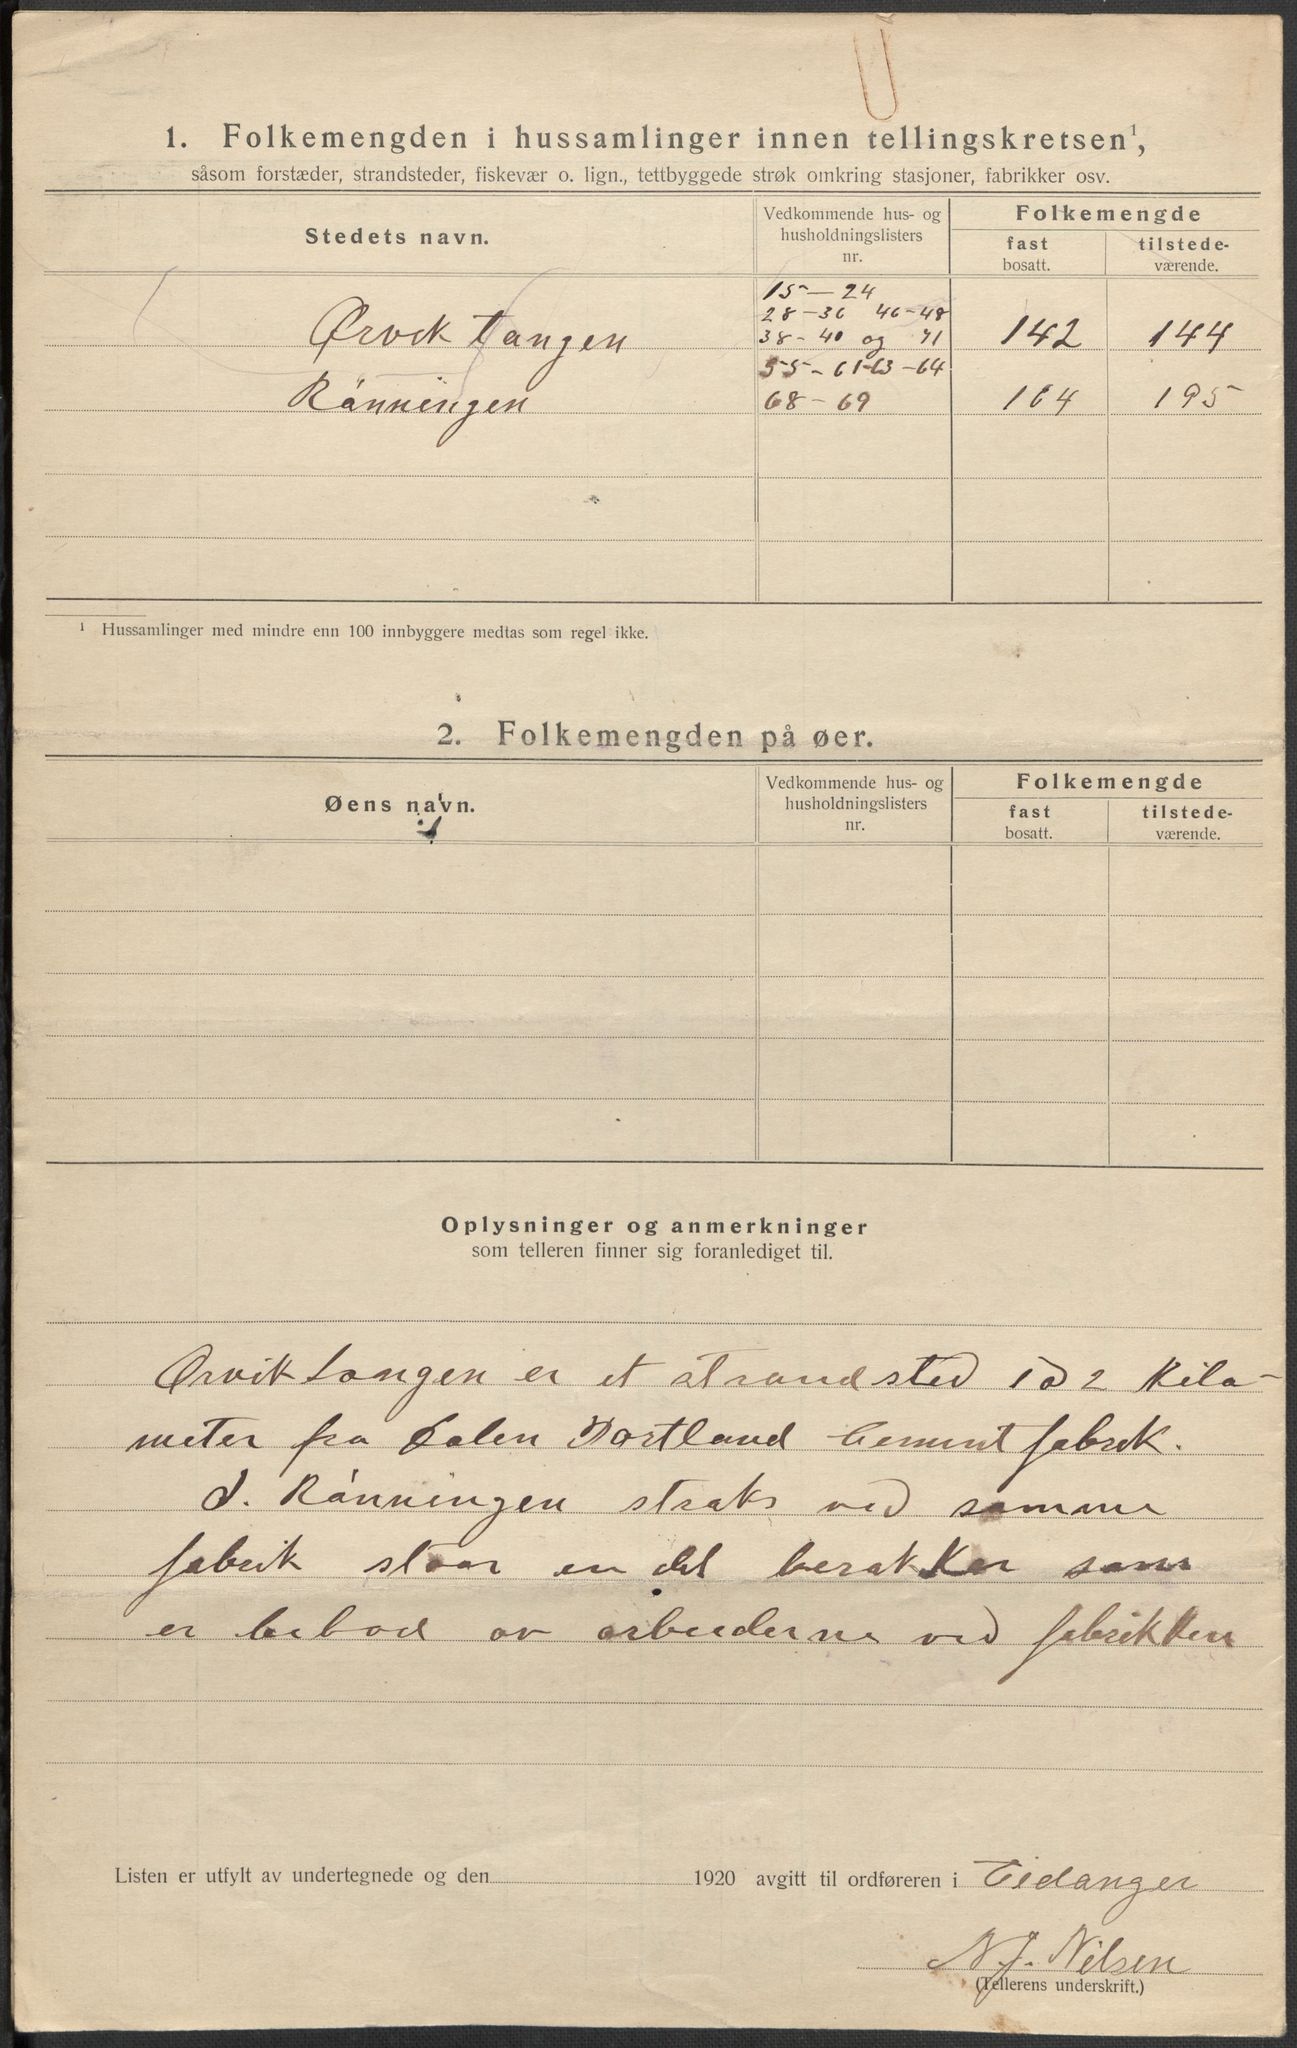 1. Folkemengden i hussamlinger innen tellingskretsen¹,
såsom forstæder, strandsteder, fiskevær o. lign., tettbyggede strøk omkring stasjoner, fabrikker osv.
Stedets navn.
Vedkommende hus- og
husholdningslisters
nr.
Folkemengde
fast
bosatt.
tilstede-
værende.
15 - 24
28 - 36 46 - 48
Ørvik tangen 38 - 40 og 71 142 144
55 - 61-63 - 64
Rønningen 68 - 69 164 195
¹ Hussamlinger med mindre enn 100 innbyggere medtas som regel ikke.
2. Folkemengden på øer.
Øens navn.
Vedkommende hus- og
husholdningslisters
nr.
Folkemengde
fast
bosatt.
tilstede-
værende.
Oplysninger og anmerkninger
som telleren finner sig foranlediget til.
Ørviktangen er et strandsted 1 a 2 Kilo-
meter fra Dalen Portland Cement fabrik.
I. Rønningen straks ved samme
fabrik staar en del berakker som
er bebod av arbeiderne ved fabrikken
Listen er utfylt av undertegnede og den 1920 avgitt til ordføreren i Eidanger
N. J. Nilsen
(Tellerens underskrift.)